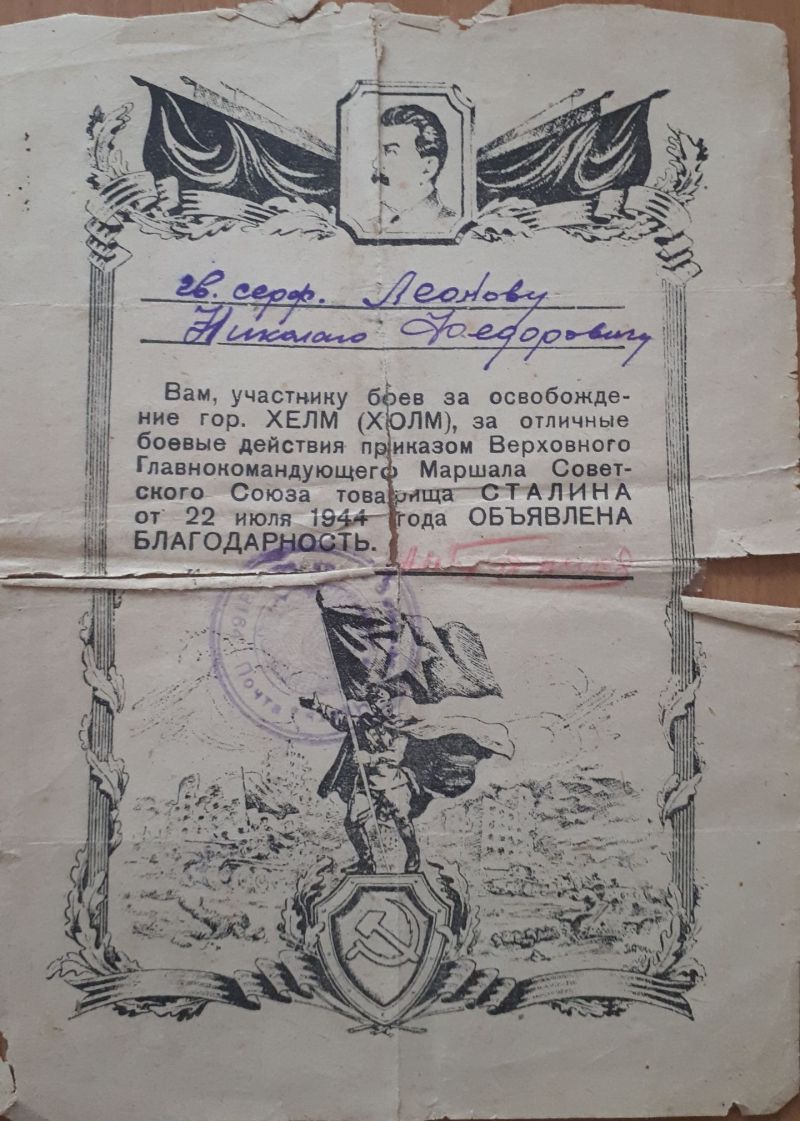 гв. серж. Леонову
Николаю Федоровичу
Вам, участнику боев за освобожде-
ние гор. ХЕЛМ (ХОЛМ), за отличные
боевые действия приказом Верховного
Главнокомандующего Маршала Совет-
ского Союза товарища СТАЛИНА
от 22 июля 1944 года ОБЪЯВЛЕНА
БЛАГОДАРНОСТЬ.
Почта